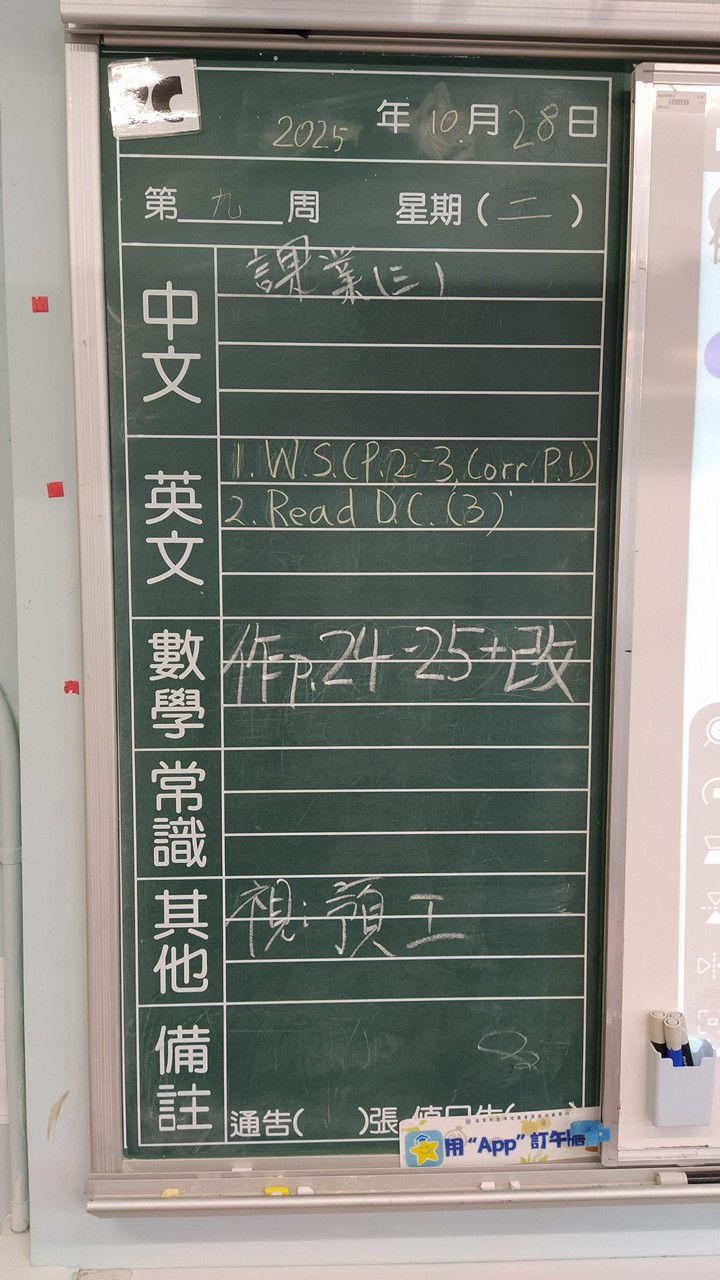 2025 年 10 月 28 日
第 九 周 星期 ( 二 )
中文
課業(三)
英文
1. W.S.(P.2-3, Corr. P.1)
2. Read D.C. (3)
數學
作p.24-25+改
常識
其他
視:預工
備註
通告( )張
用“App”訂午膳